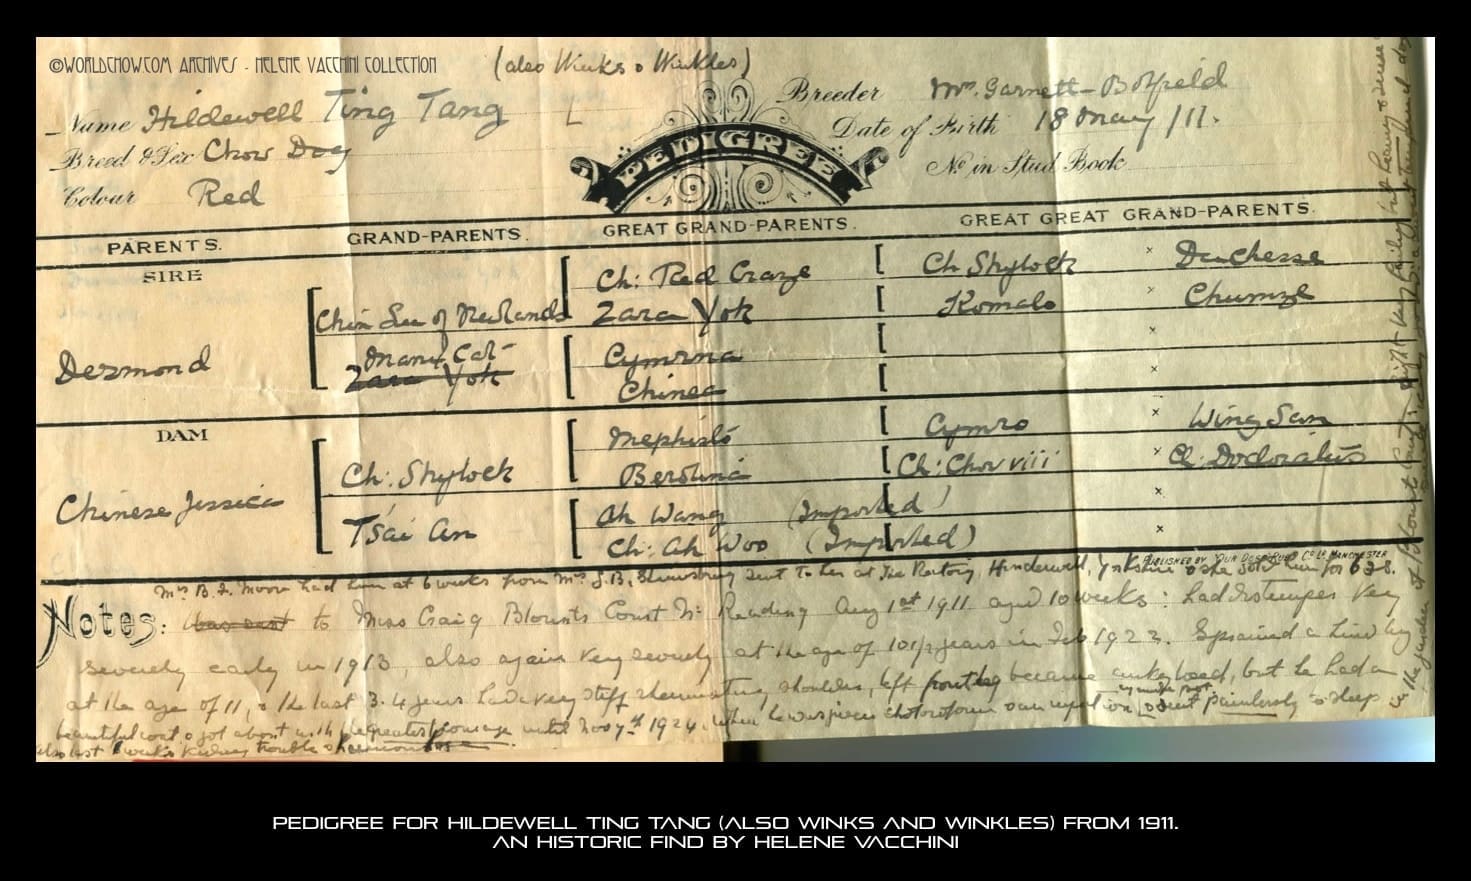 ©WORLDCHOW.COM ARCHIVES - HELENE VACCHINI COLLECTION
(also Winks & Winkles)
Name Hildewell Ting Tang
Breed & Sex Chow Dog
Colour Red
PEDIGREE
Breeder Mrs. Garnett-Botfield
Date of Birth 18 May /11.
No in Stud Book
PARENTS. GRAND-PARENTS. GREAT GRAND-PARENTS. GREAT GREAT GRAND-PARENTS.
SIRE
Desmond
Chin Lu of Redlands
Manx Cat
Zara Yok
Ch: Red Craze
Zara Yok
Cymrna
Chinea
Ch Shylock × Duchesse
Komalo × Chumze
×
×
DAM
Chinese Jessica
Ch: Shylock
Tsai An
Mephisto
Berolina
Ah Wang (Imported)
Ch: Ah Woo (Imported)
Cymro × Wing Sam
Ch: Chow viii × Ch:
×
×
PUBLISHED BY "OUR DOGS" PUBG CO. LD. MANCHESTER
Mrs B. F. Moore had him at 6 weeks from Mrs J. B. sent to her at The Rectory, Hinderwell, Yorkshire & she sold him for
Notes: was sent to Miss Craig Blounts Court Nr Reading Aug 1st 1911 aged 10 weeks: had distemper very
severely early in 1913, also again very severely at the age of 10 1/2 years in Feb 1922. Sprained a hind leg
at the age of 11, & the last 3.4 years had very stiff shoulders, left front leg became, but he had a
beautiful coat & got about with the greatest courage until Novr 1924. When he was given chloroform & sent painlessly to sleep
also last weeks kidney trouble
PEDIGREE FOR HILDEWELL TING TANG (ALSO WINKS AND WINKLES) FROM 1911.
AN HISTORIC FIND BY HELENE VACCHINI